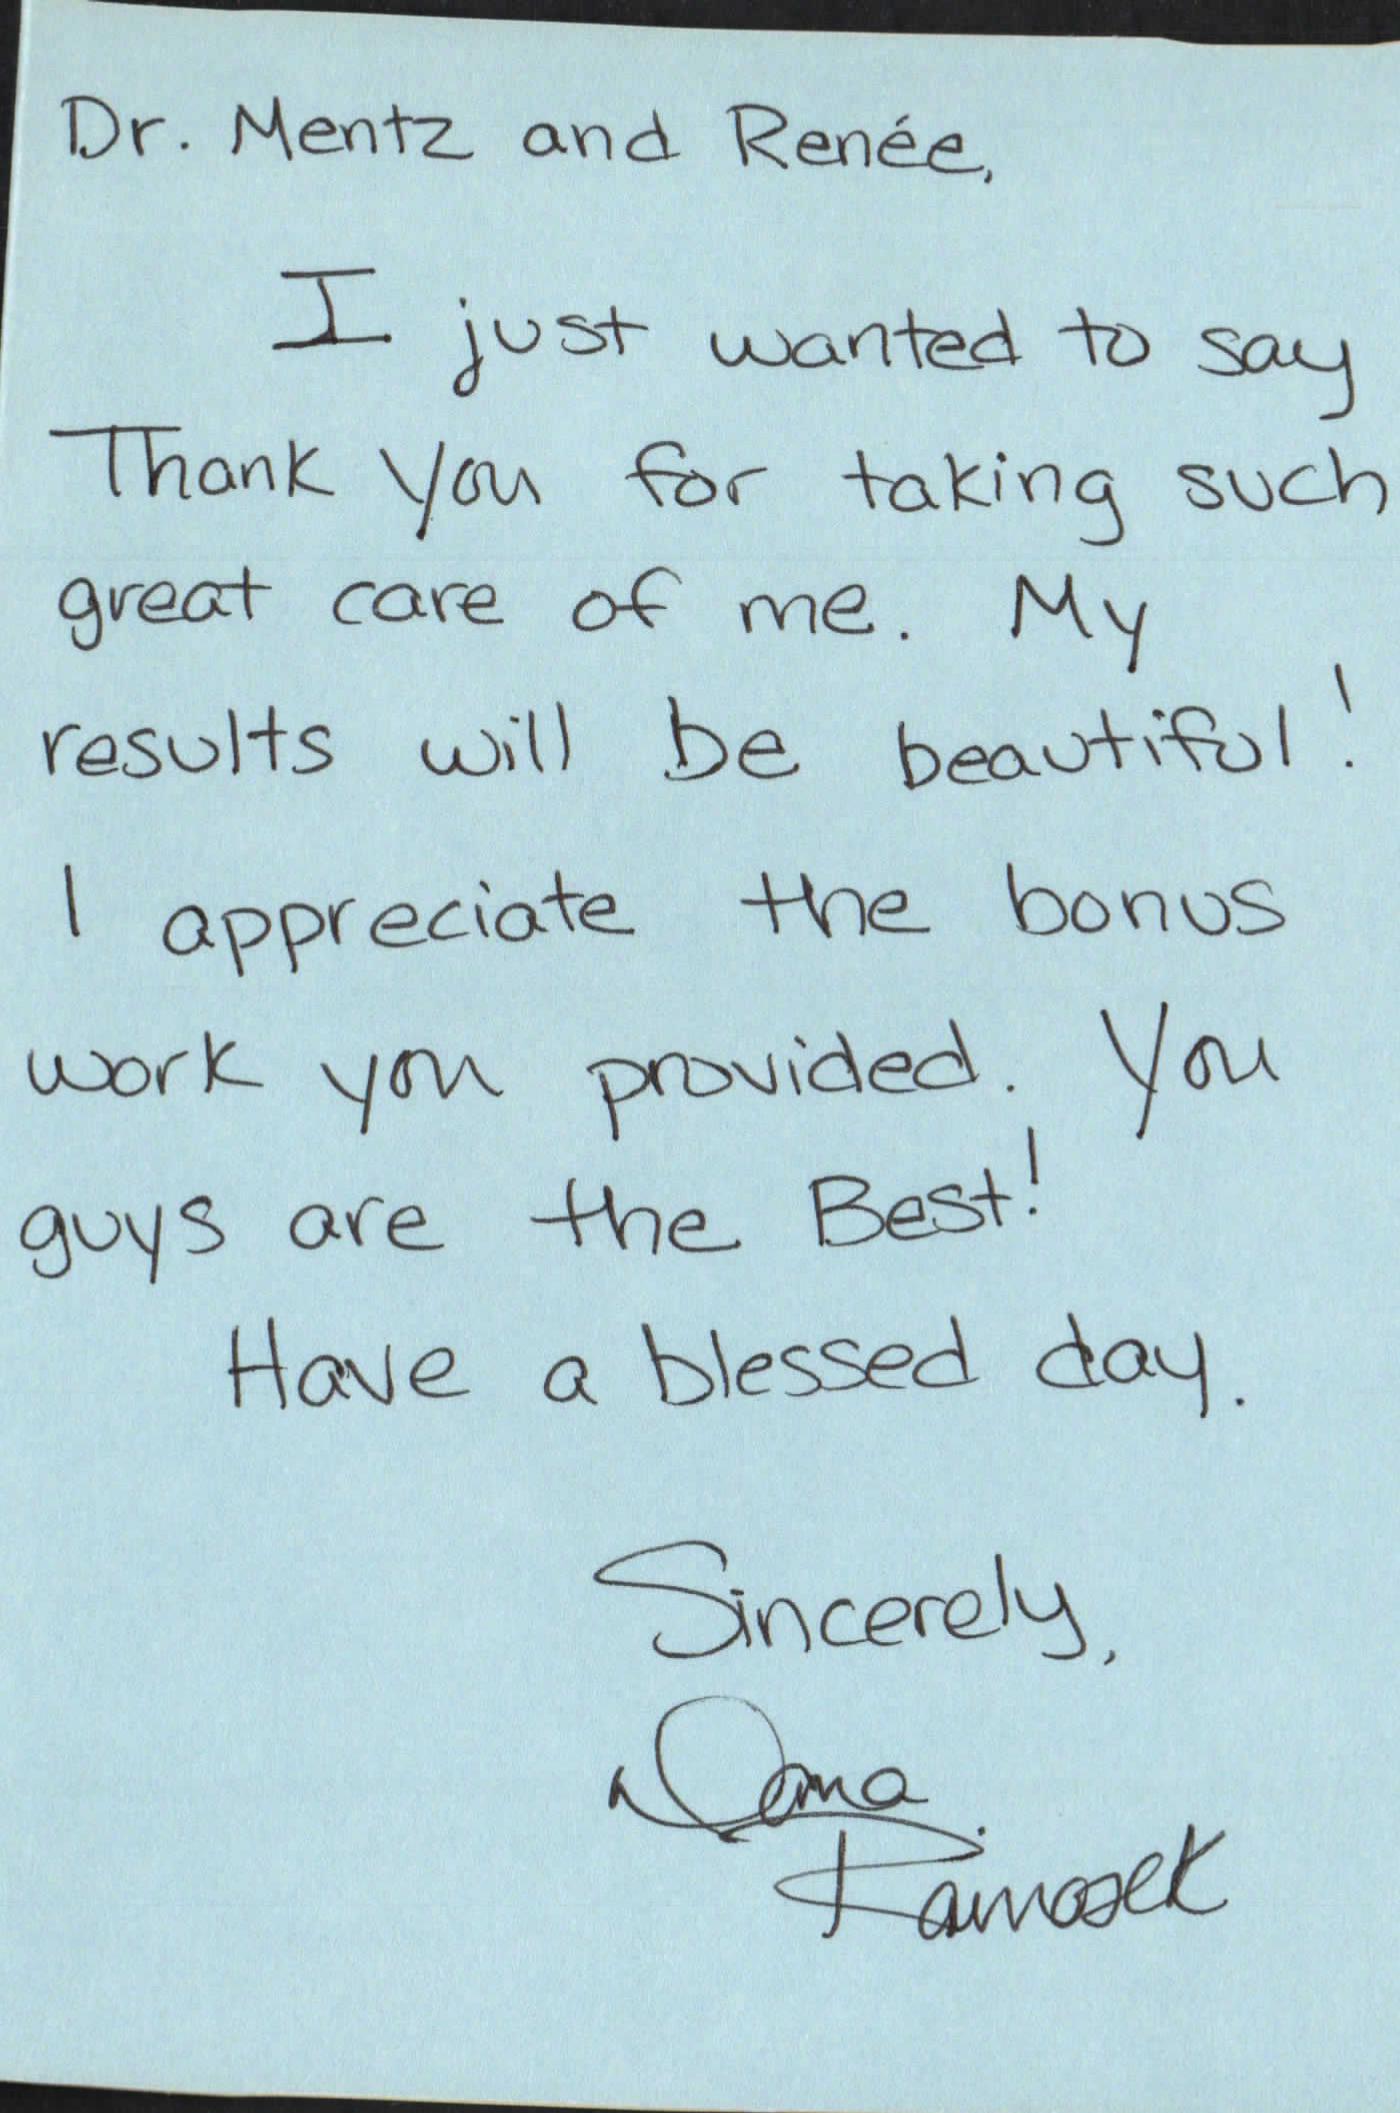 Dr. Mentz and Renée,
I just wanted to say
Thank you for taking such
great care of me. My
results will be beautiful!
I appreciate the bonus
work you provided. You
guys are the Best!
Have a blessed day.
Sincerely,